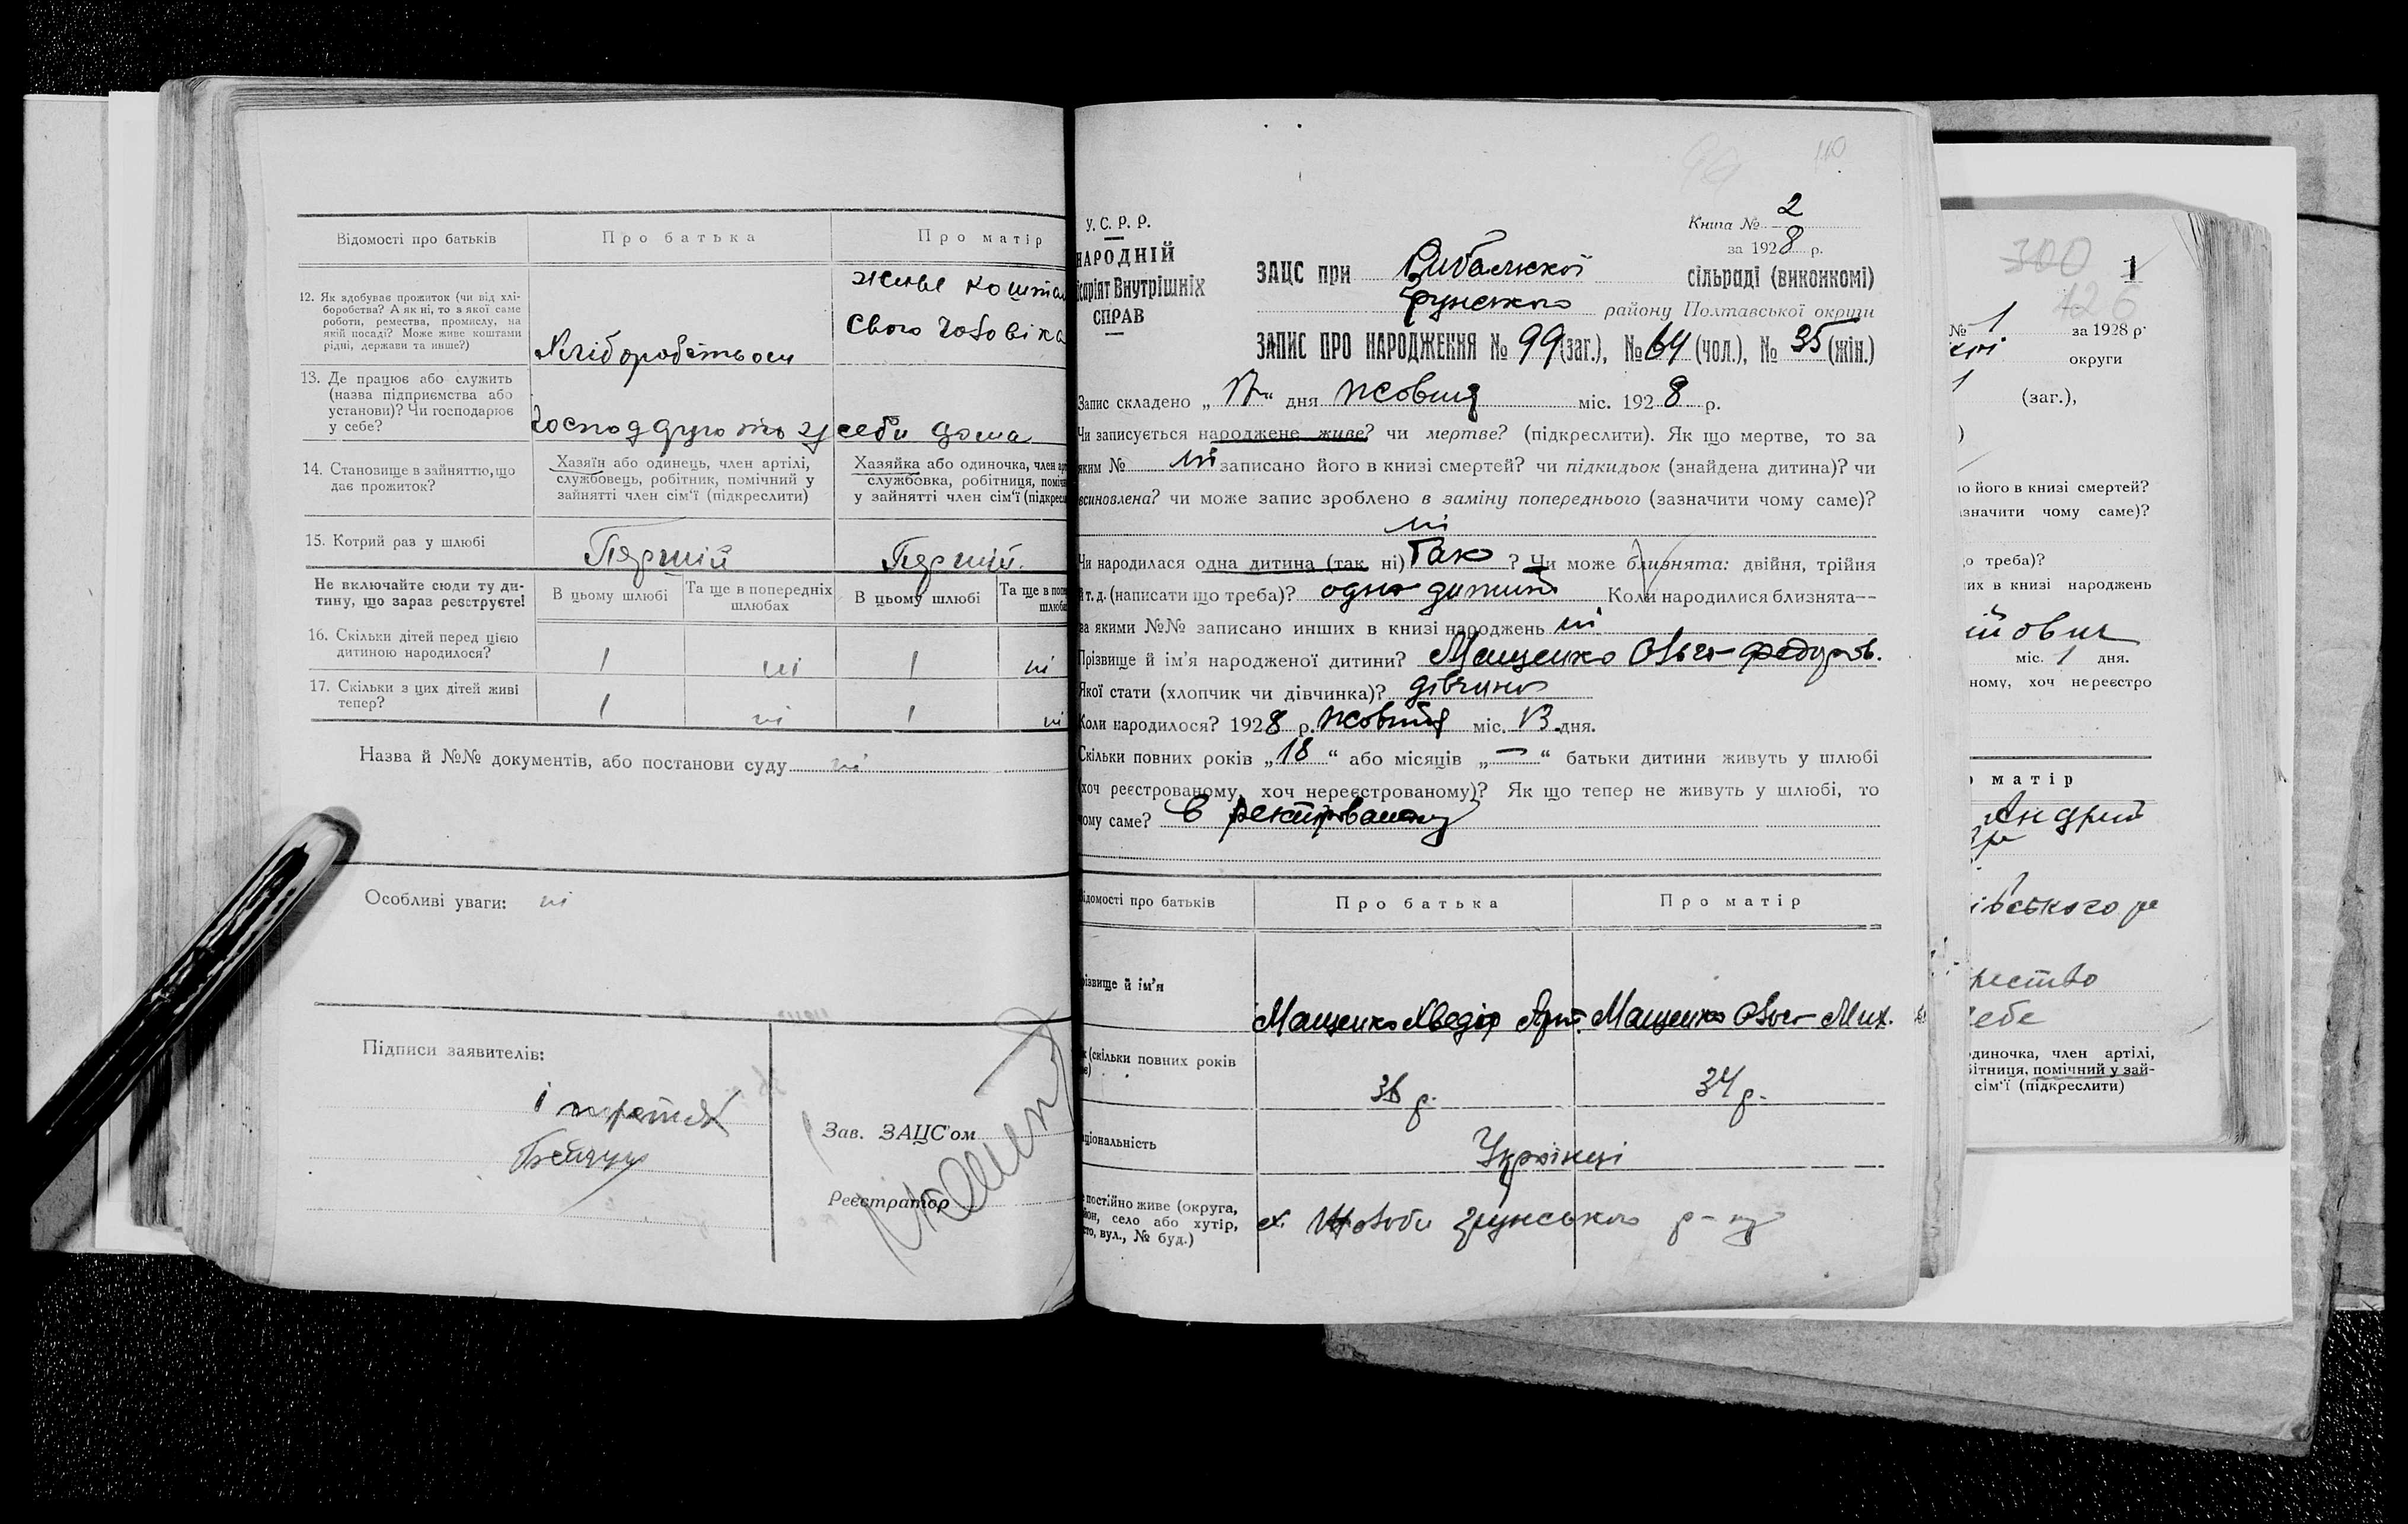 Відомості про батьків Про батька Про матір
12. Як здобуває прожиток (чи від хлі-
боробства? А як ні, то з якої саме
роботи, ремества, промислу, на
якій посаді? Може живе коштами
рідні, держави та инше?)
Хліборобством
живе коштам
свого чоловіка
13. Де працює або служить
(назва підприємства або
установи)? Чи господарює
у себе?
Господарують у себе дома
14. Становище в зайняттю, що
дає прожиток?
Хазяїн або одинець, член артілі,
службовець, робітник, помічний у
зайнятті член сім'ї (підкреслити)
Хазяйка або одиночка, член
службовка, робітниця,
у зайнятті член сім'ї
15. Котрий раз у шлюбі Перший Перший.
Не включайте сюди ту ди-
тину, що зараз реєструєте!
В цьому шлюбі Та ще в попередніх
шлюбах
В цьому шлюбі Та ще в
16. Скільки дітей перед цією
дитиною народилося?
1 ні 1 ні
17. Скільки з цих дітей живі
тепер?
1 ні 1 ні
Назва й №№ документів, або постанови суду ні
Особливі уваги: ні
Підписи заявителів:
Зав. ЗАЦС'ом
Реєстратор
110
У. С. Р. Р.
НАРОДНІЙ
Внутрішніх
СПРАВ
Книга № 2
за 1928 р.
ЗАЦС при Рибальскої сільраді (виконкомі)
Грунського району Полтавської округи
ЗАПИС ПРО НАРОДЖЕННЯ № 99 (заг.), № 64 (чол.), № 35 (жін.)
Запис складено „17“ дня жовтня міс. 1928 р.
Чи записується народжене живе? чи мертве? (підкреслити). Як що мертве, то за
яким № ні записано його в книзі смертей? чи підкидьок (знайдена дитина)? чи
всиновлена? чи може запис зроблено в заміну попереднього (зазначити чому саме)?
ні
Чи народилася одна дитина (так, ні) Так ? Чи може близнята: двійня, трійня
й т. д. (написати що треба)? одна дитина Коли народилися близнята—
за якими №№ записано инших в книзі народжень ні
Прізвище й ім'я народженої дитини? Мащенко Ольга Федоров.
Якої стати (хлопчик чи дівчинка)? дівчина
Коли народилося? 1928 р. жовтня міс. 13 дня.
Скільки повних років „18“ або місяців „—“ батьки дитини живуть у шлюбі
(хоч реєстрованому, хоч нереєстрованому)? Як що тепер не живуть у шлюбі, то
чому саме? В
Відомості про батьків Про батька Про матір
Прізвище й ім'я
Мащенко Хведір Арт. Мащенко Ольга Мих.
(скільки повних років
36 р. 34 р.
Національність Українці
постійно живе (округа,
село або хутір,
вул., № буд.)
х. грунського р-ну
300 1
426
№ 1 за 1928 р.
округи
1 (заг.),
його в книзі смертей?
значити чому саме)?
треба)?
в книзі народжень
міс. 1 дня.
ному, хоч нереєстро
матір
Андрій
івського
диночка, член артілі,
робітниця, помічний у зай-
сім'ї (підкреслити)